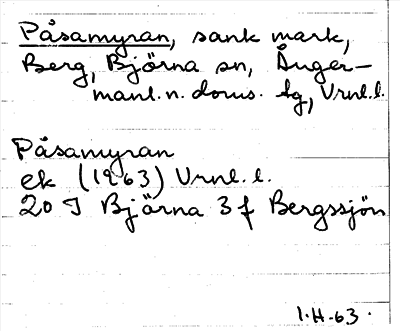 Påsamyran, sank mark,
Berg, Björna sn, Ånger-
manl. n. doms. tg, Vrnl. l.
Påsamyran
ek (1963) Vrnl. l.
20 I Björna 3 f Bergssjön
I.H.63.